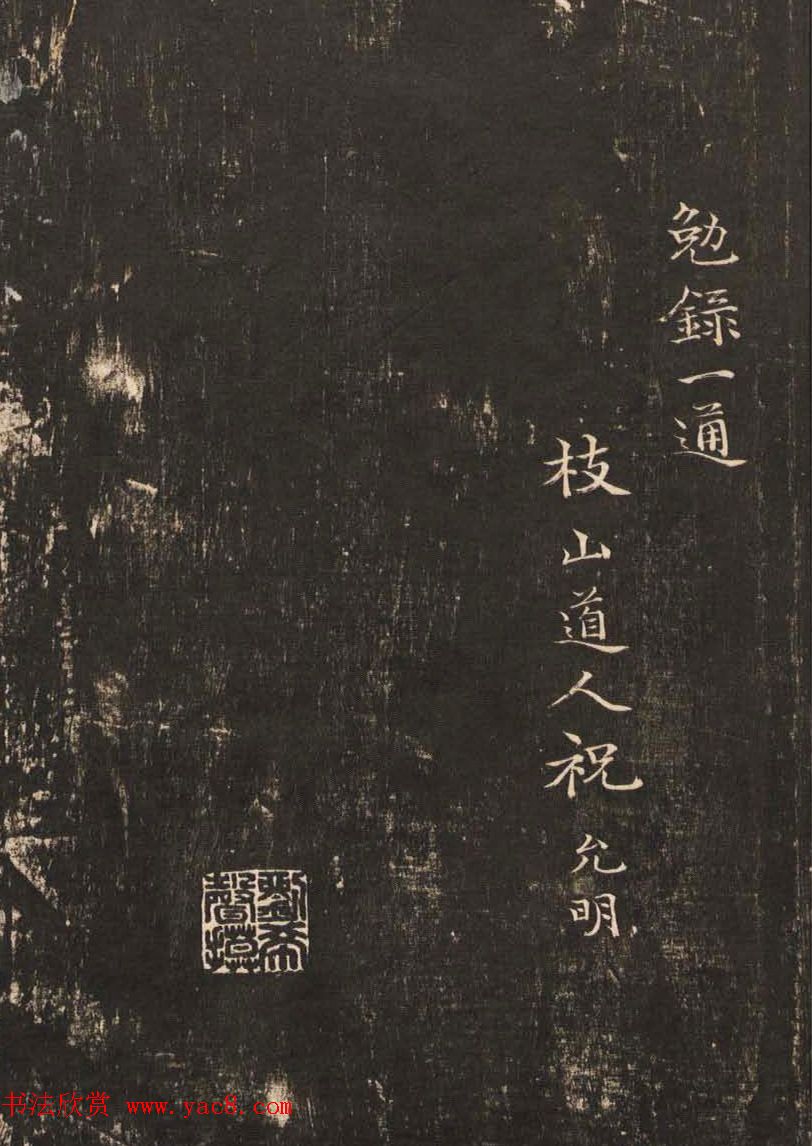 勉錄一通
枝山道人祝允明
劉希
聲摸
书法欣赏 www.yac8.com